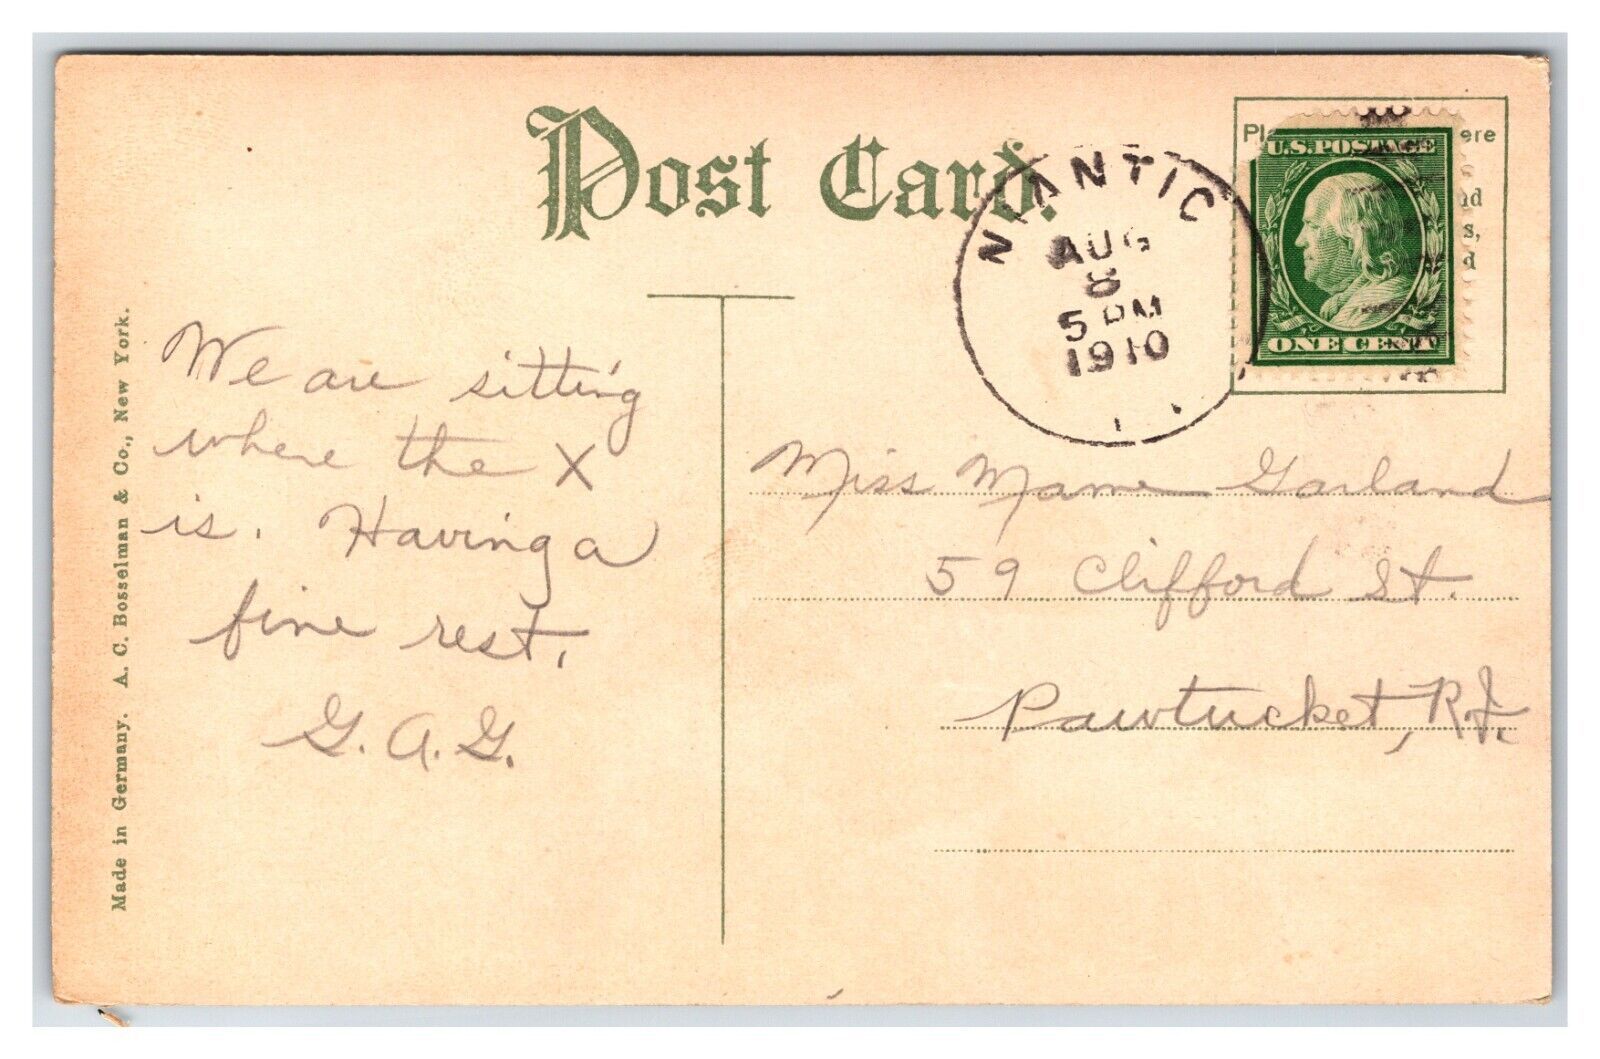 Post Card.
NIANTIC
AUG
8
5 PM
1910
Pl ere
U.S. POSTAGE
ONE CENT
We are sitting
where the X
is. Having a
fine rest.
G. A. G.
Miss Mame Garland
59 Clifford St.
Pawtucket, R.I.
Made in Germany. A. C. Bosselman & Co., New York.